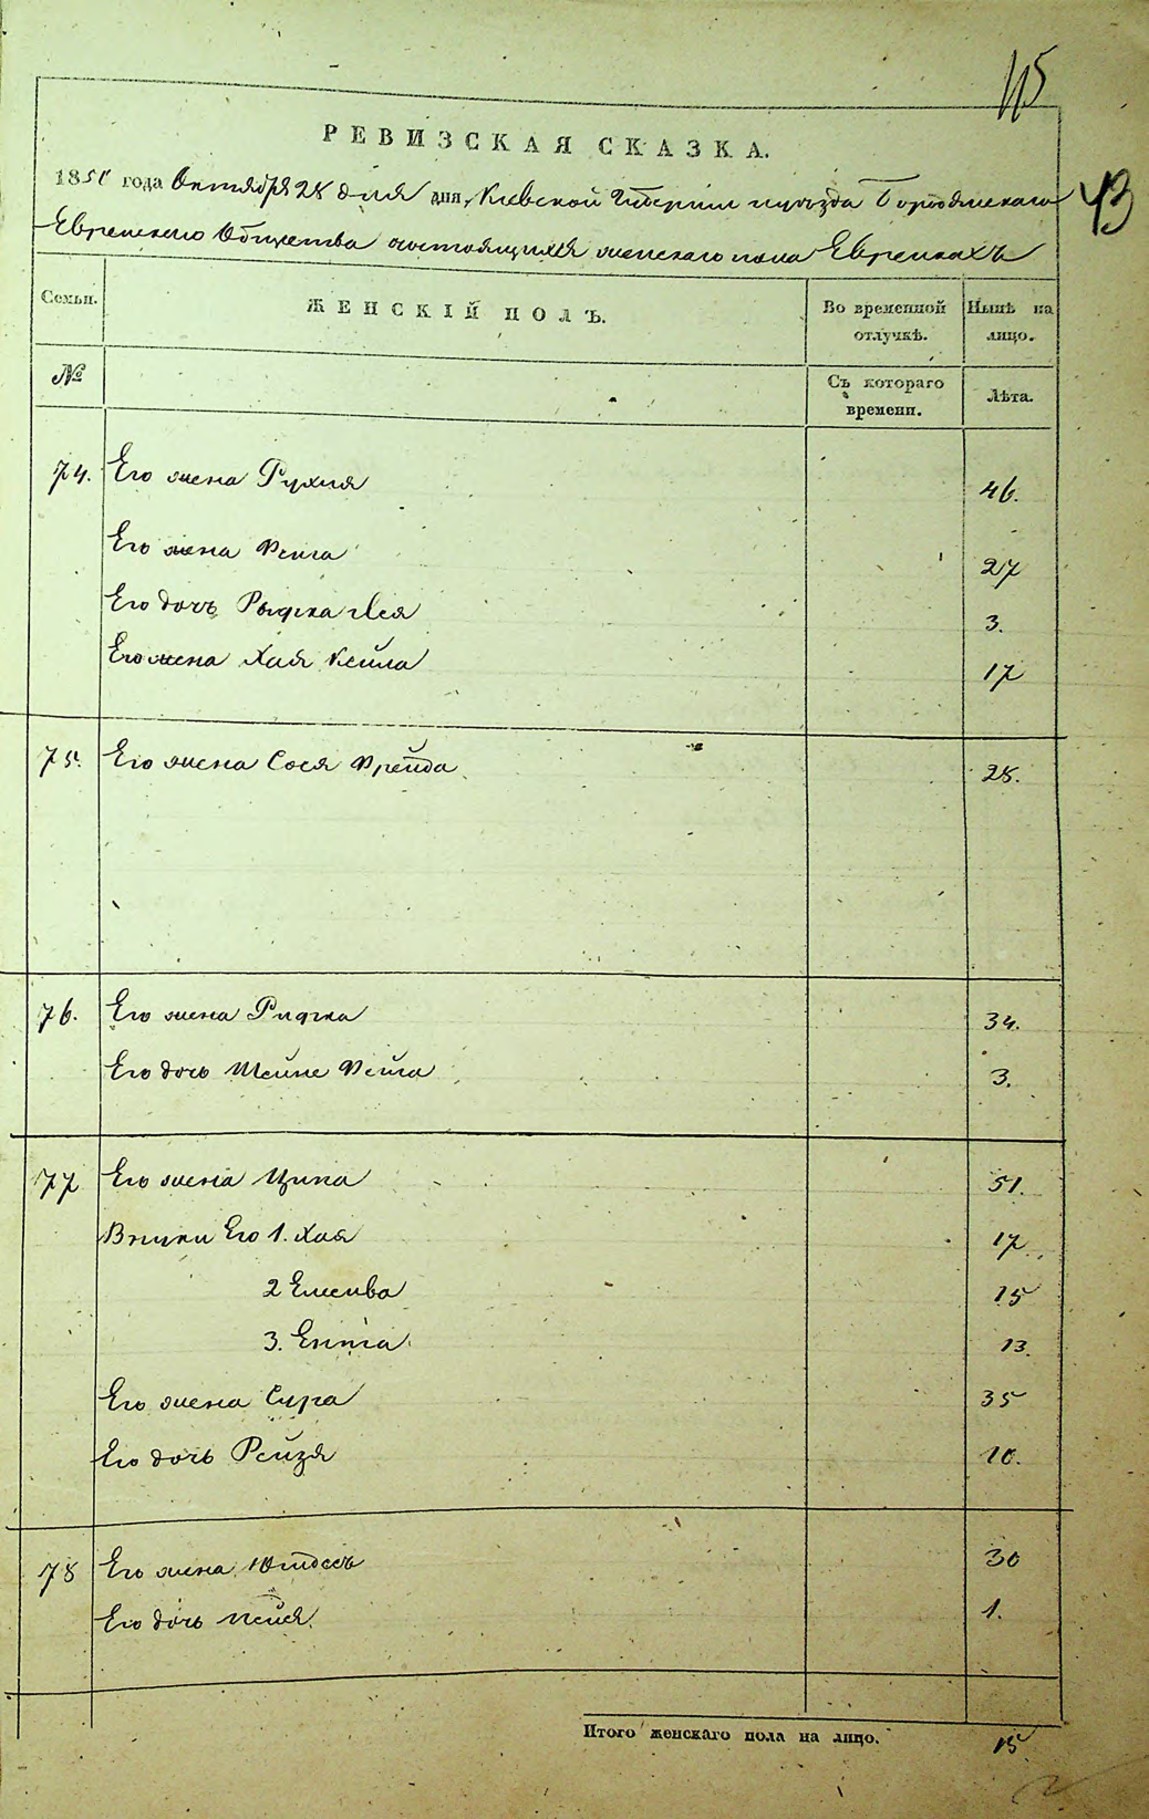 115
43
РЕВИЗСКАЯ СКАЗКА.
1850 года Октября 28 дня дня, Киевской Губернии и уезда Бородянскаго
Еврейскаго Общества состоящихся женскаго пола Еврейкахъ
Семьи. ЖЕНСКІЙ ПОЛЪ. Во временной отлучкѣ. Нынѣ на лицо.
№ Съ котораго времени. Лѣта.
74. Его жена Рухля 46.
Его жена Фейга 27
Его дочь Рывка Лея 3.
Его жена Хая Кейла 17
75. Его жена Сося Фрейда 28.
76. Его жена Ривка 34.
Его дочь Шейне Фейга 3.
77 Его жена Ципа 51.
Внуки Его 1. Хая 17
2 Елисива 15
3. Ента 13.
Его жена Сура 35
Его дочь Рейзя 10.
78 Его жена 30
Его дочь Пейся. 1.
Итого женскаго пола на лицо. 15